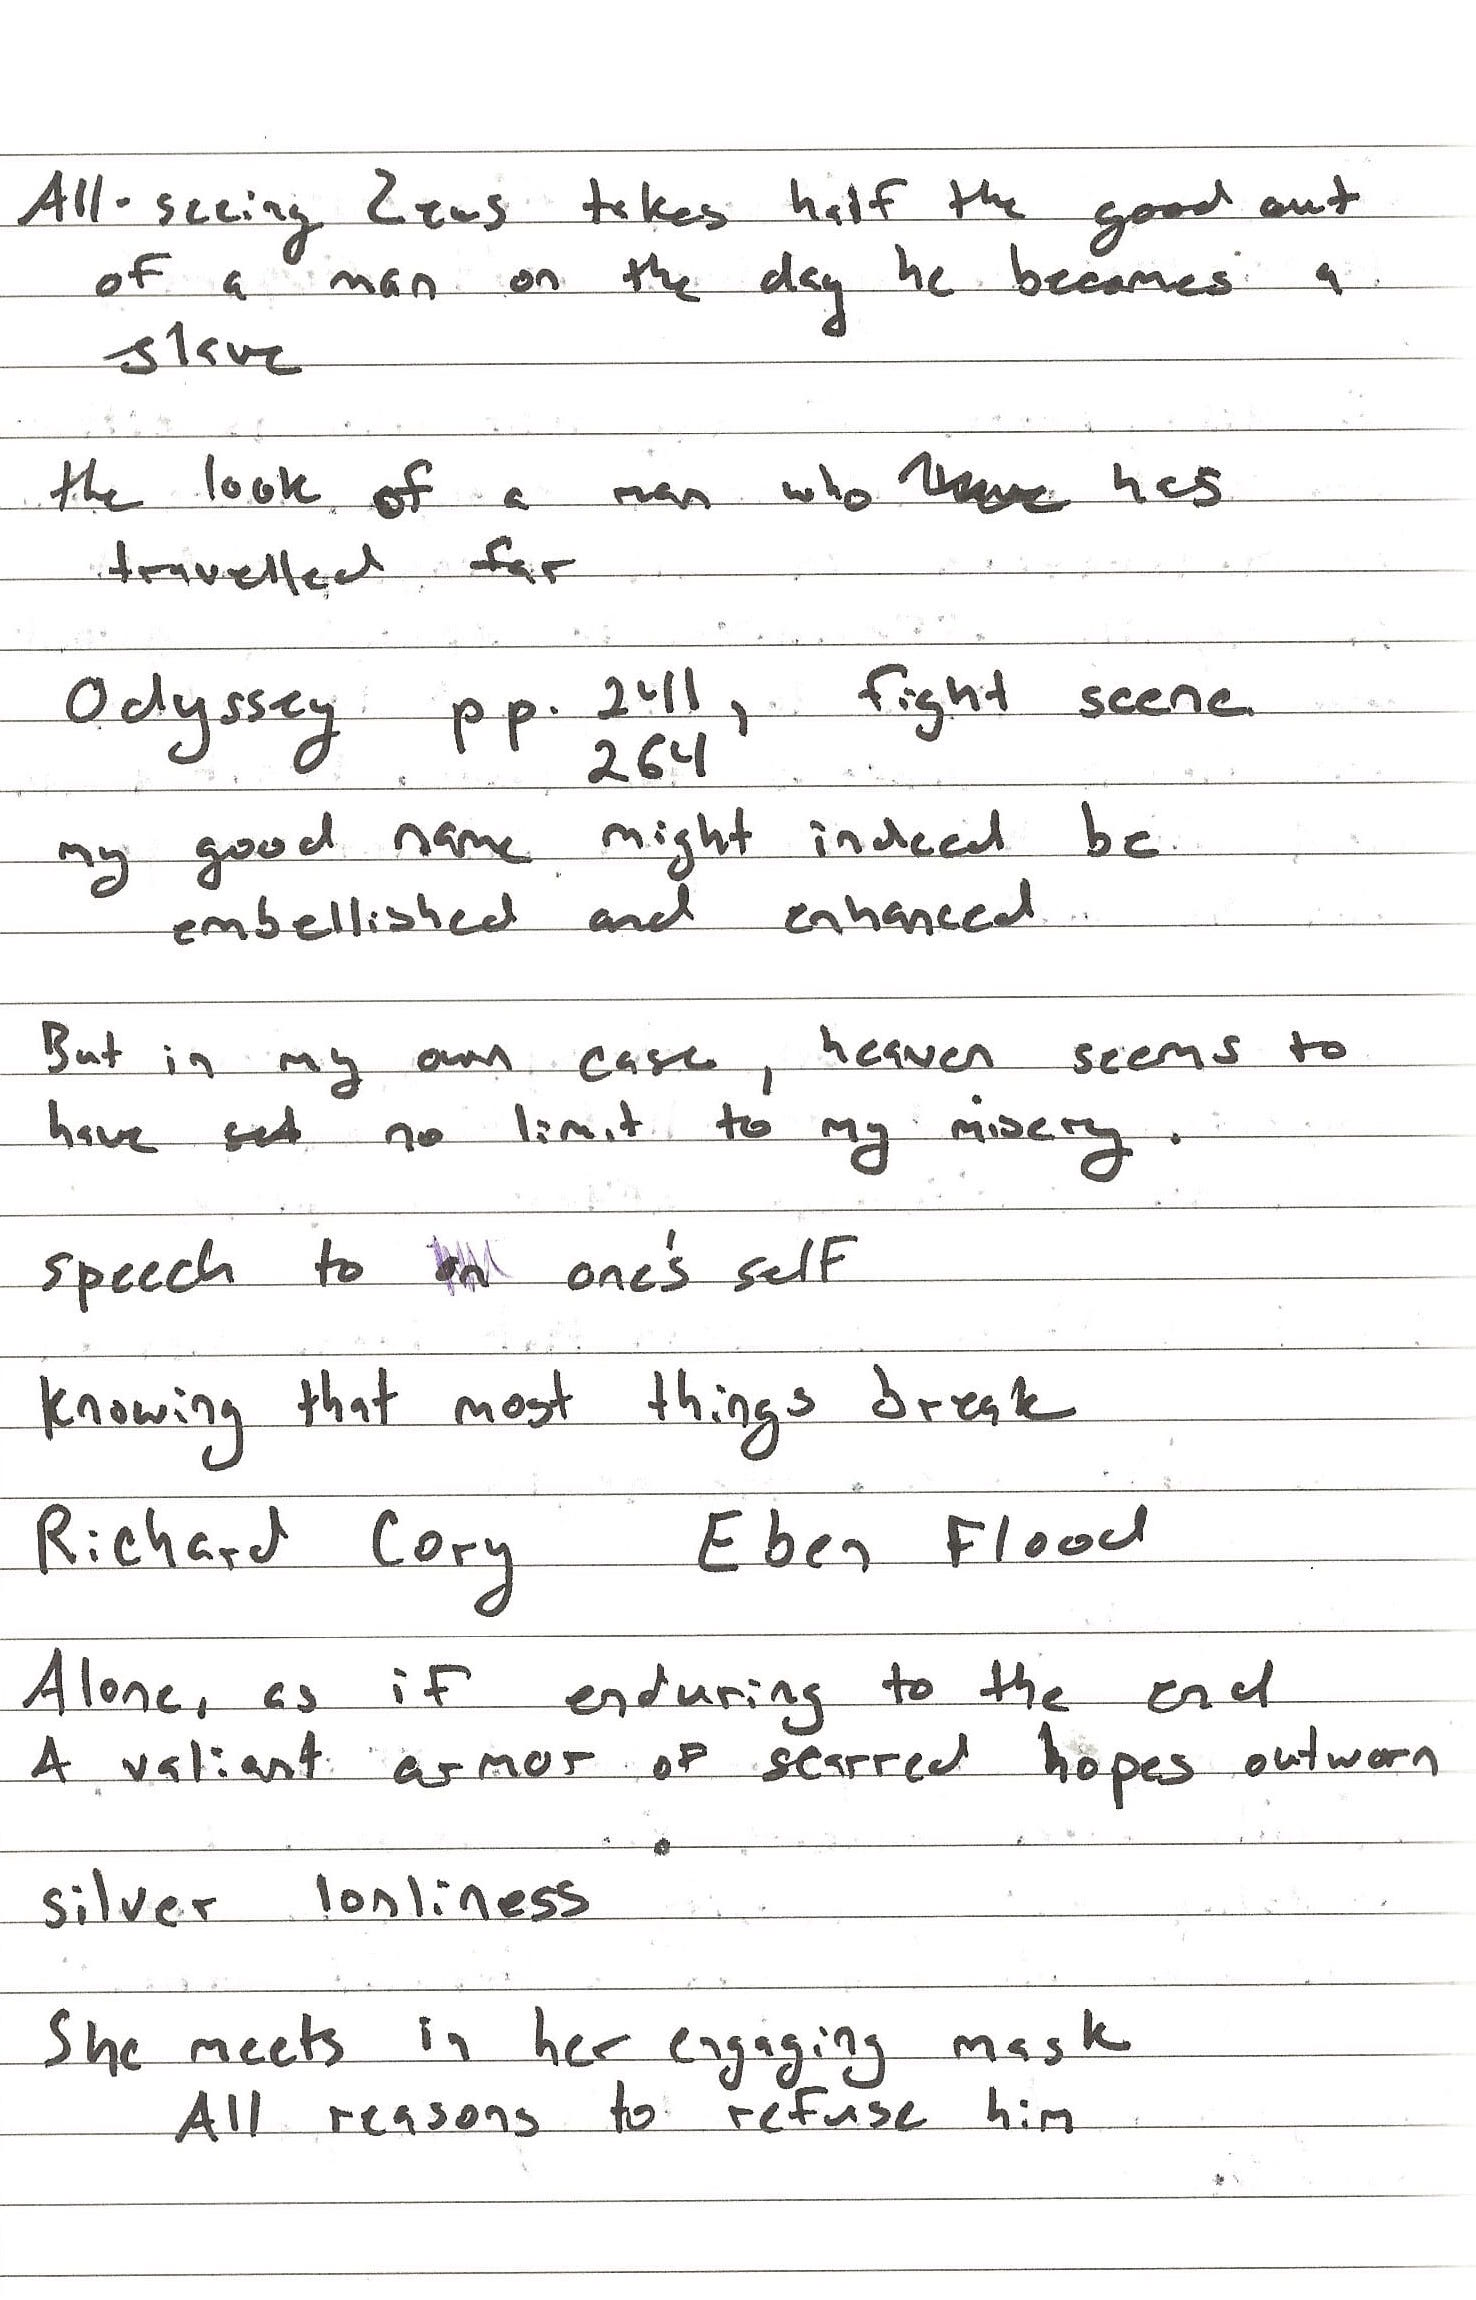 All-seeing Zeus takes half the good out
of a man on the day he becomes a
slave
the look of a man who has
travelled far
Odyssey pp. 241, fight scene
264
my good name might indeed be
embellished and enhanced
But in my own case, heaven seems to
have set no limit to my misery.
speech to one's self
knowing that most things break
Richard Cory Eben Flood
Alone, as if enduring to the end
A valiant armor of scarred hopes outworn
silver lonliness
She meets in her engaging mask
All reasons to refuse him